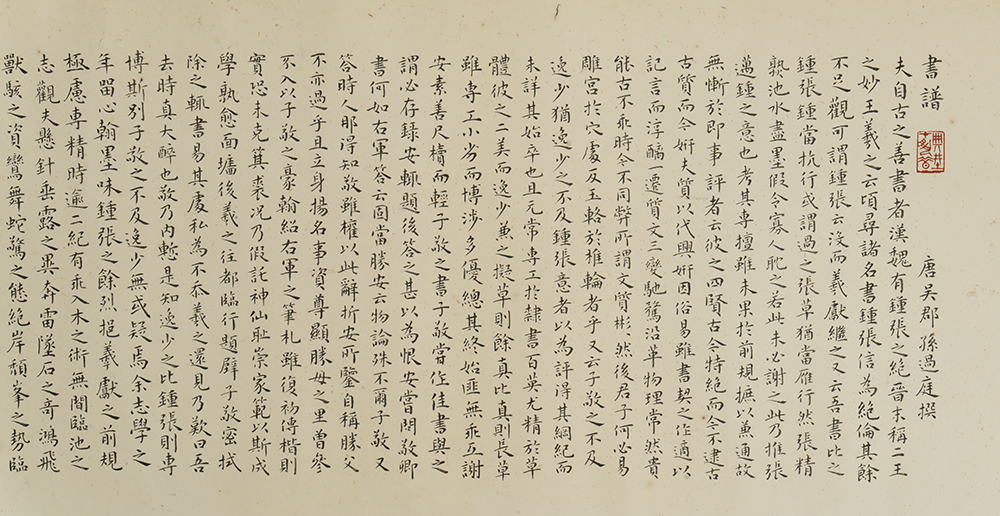 書譜
唐吳郡孫過庭撰
夫自古之善書者漢魏有鍾張之絕晉末稱二王
之妙王羲之云頃尋諸名書鍾張信為絕倫其餘
不足觀可謂鍾張云沒而羲獻繼之又云吾書比之
鍾張鍾當抗行或謂過之張草猶當雁行然張精
熟池水盡墨假令寡人耽之若此未必謝之此乃推張
邁鍾之意也考其專擅雖未果於前規摭以兼通故
無慚於即事評者云彼之四賢古今特絕而今不逮古
古質而今妍夫質以代興妍因俗易雖書契之作適以
記言而淳醨一遷質文三變馳騖沿革物理常然貴
能古不乖時今不同弊所謂文質彬々然後君子何必易
雕宮於穴處反玉輅於椎輪者乎又云子敬之不及
逸少猶逸少之不及鍾張意者以為評得其綱紀而
未詳其始卒也且元常專工於隸書百英尤精於草
體彼之二美而逸少兼之擬草則餘真比真則長草
雖專工小劣而博涉多優總其終始匪無乖互謝
安素善尺牘而輕子敬之書子敬嘗作佳書與之
謂必存錄安輒題後答之甚以為恨安嘗問敬卿
書何如右軍答云固當勝安云物論殊不爾子敬又
答時人那得知敬雖權以此辭折安所鑒自稱勝父
不亦過乎且立身揚名事資尊顯勝母之里曾參
不入以子敬之豪翰紹右軍之筆札雖復粗傳楷則
實恐未克箕裘況乃假託神仙恥崇家範以斯成
學孰愈面墻後羲之往都臨行題壁子敬密拭
除之輒書易其處私為不忝羲之還見乃歎曰吾
去時真大醉也敬乃內慙是知逸少之比鍾張則專
博斯別子敬之不及逸少無或疑焉余志學之
年留心翰墨味鍾張之餘烈挹羲獻之前規
極慮專精時逾二紀有乖入木之術無間臨池之
志觀夫懸針垂露之異奔雷墜石之奇鴻飛
獸駭之資鸞舞蛇驚之態絕岸頹峯之勢臨